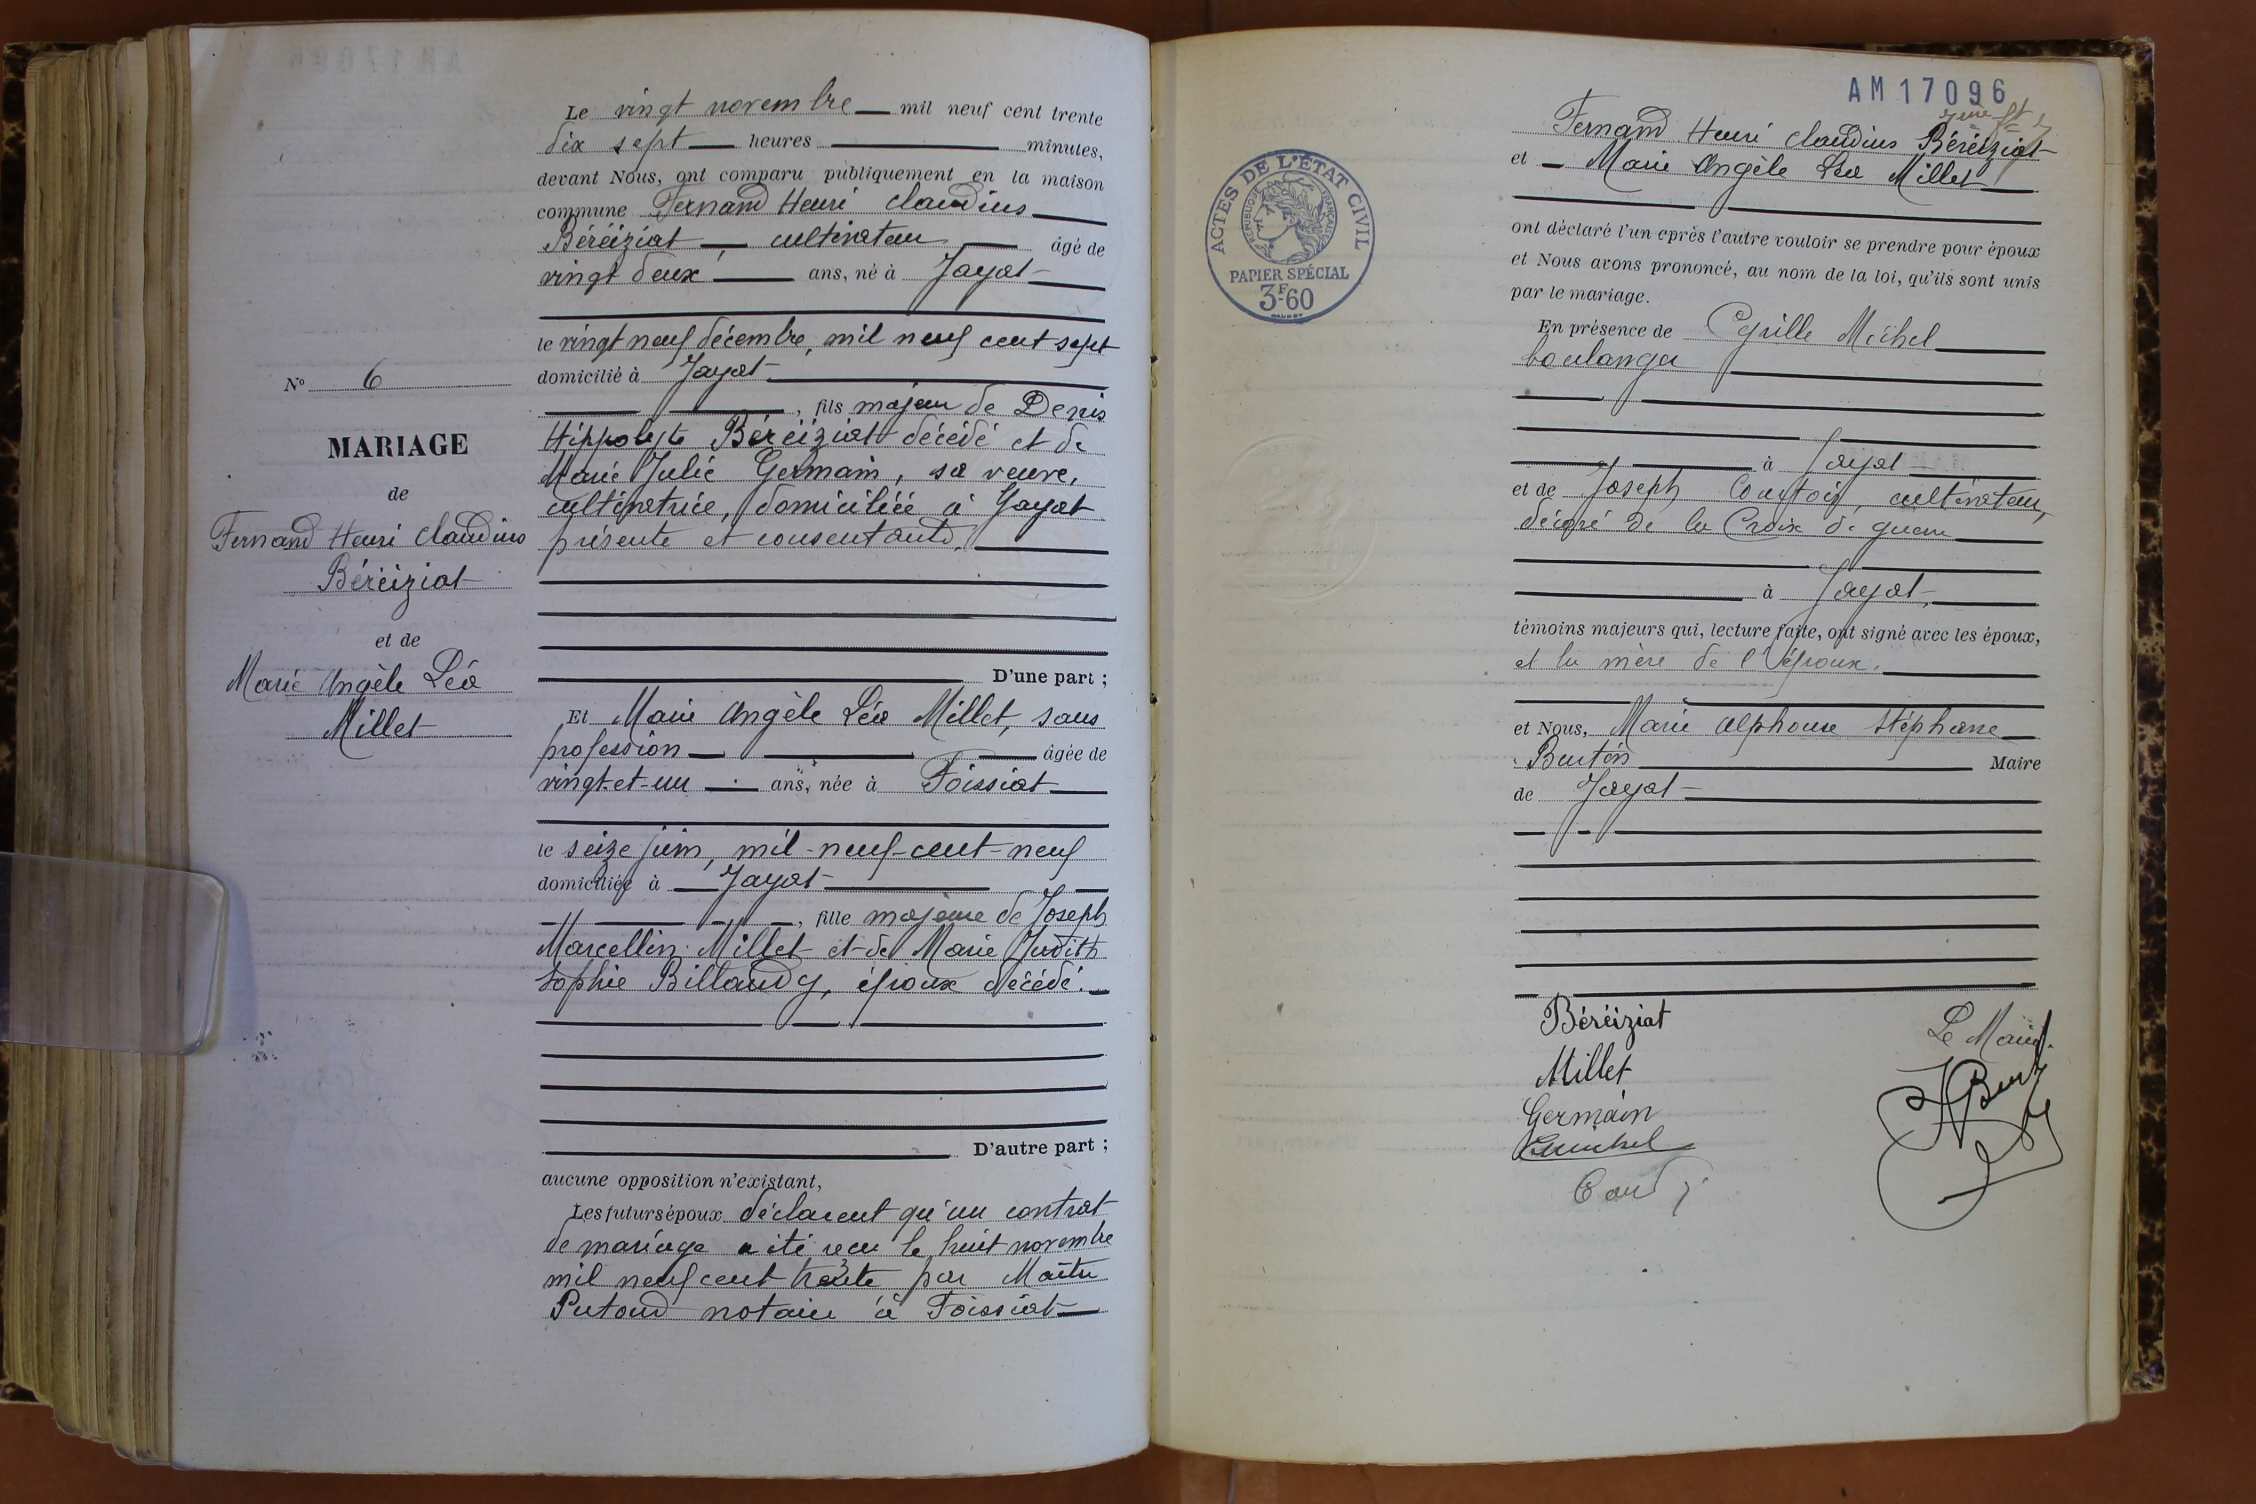 Le vingt novembre mil neuf cent trente
dix sept heures minutes,
devant Nous, ont comparu publiquement en la maison
commune Fernand Henri Claudius
Béréiziat cultivateur âgé de
vingt deux ans, né à Jayat
le vingt neuf décembre, mil neuf cent sept
domicilié à Jayat
, fils majeur de Denis
Hippolyte Béréiziat décédé et de
Marie Julie Germain, sa veuve,
cultivatrice, domiciliée à Jayat
présente et consentante,
D'une part ;
Et Marie Angèle Léa Millet, sans
profession âgée de
vingt-et-un ans, née à Foissiat
le seize juin, mil-neuf-cent-neuf
domiciliée à Jayat
, fille majeure de Joseph
Marcellin Millet et de Marie Judith
Sophie Billaudy, époux décédé.
D'autre part ;
aucune opposition n'existant,
Les futurs époux déclarent qu'un contrat
de mariage a été reçu le huit novembre
mil neuf cent trente par Maître
Putoud notaire à Foissiat
No 6
MARIAGE
de
Fernand Henri Claudius
Béréiziat
et de
Marie Angèle Léa
Millet
AM17096
Fernand Henri Claudius Béréiziat
et Marie Angèle Léa Millet
ACTES DE L'ÉTAT CIVIL
RÉPUBLIQUE FRANÇAISE
PAPIER SPÉCIAL
3F60
ont déclaré l'un après l'autre vouloir se prendre pour époux
et Nous avons prononcé, au nom de la loi, qu'ils sont unis
par le mariage.
En présence de Cyrille Michel
boulanger
à Jayat
et de Joseph Courtois, cultivateur,
décoré de la Croix de guerre
à Jayat,
témoins majeurs qui, lecture faite, ont signé avec les époux,
et la mère de l'époux.
et Nous, Marie Alphonse Stéphane
Burtin Maire
de Jayat
Béréiziat
Millet
Germain
Le Maire.